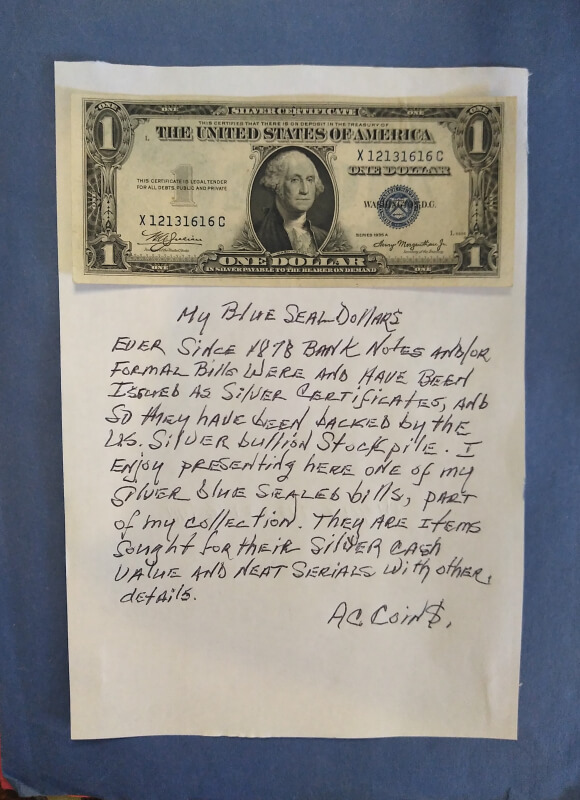 ONE
SILVER CERTIFICATE
ONE
THIS CERTIFIES THAT THERE IS ON DEPOSIT IN THE TREASURY OF
THE UNITED STATES OF AMERICA
1
1
X 12131616 C
ONE DOLLAR
THIS CERTIFICATE IS LEGAL TENDER
FOR ALL DEBTS, PUBLIC AND PRIVATE
WASHINGTON, D.C.
X 12131616 C
SERIES 1935 A
1
1
ONE DOLLAR
IN SILVER PAYABLE TO THE BEARER ON DEMAND
ONE
ONE
My Blue Seal Dollar$
Ever Since 1878 Bank Notes and/or
Formal Bills were and have been
Issued as Silver Certificates, and
So they have been backed by the
U.S. Silver bullion Stockpile. I
Enjoy presenting here one of my
Silver blue Sealed bills, part
of my collection. They are Items
Sought for their Silver Cash
Value and neat Serials with other
details.
A.C. Coin$.